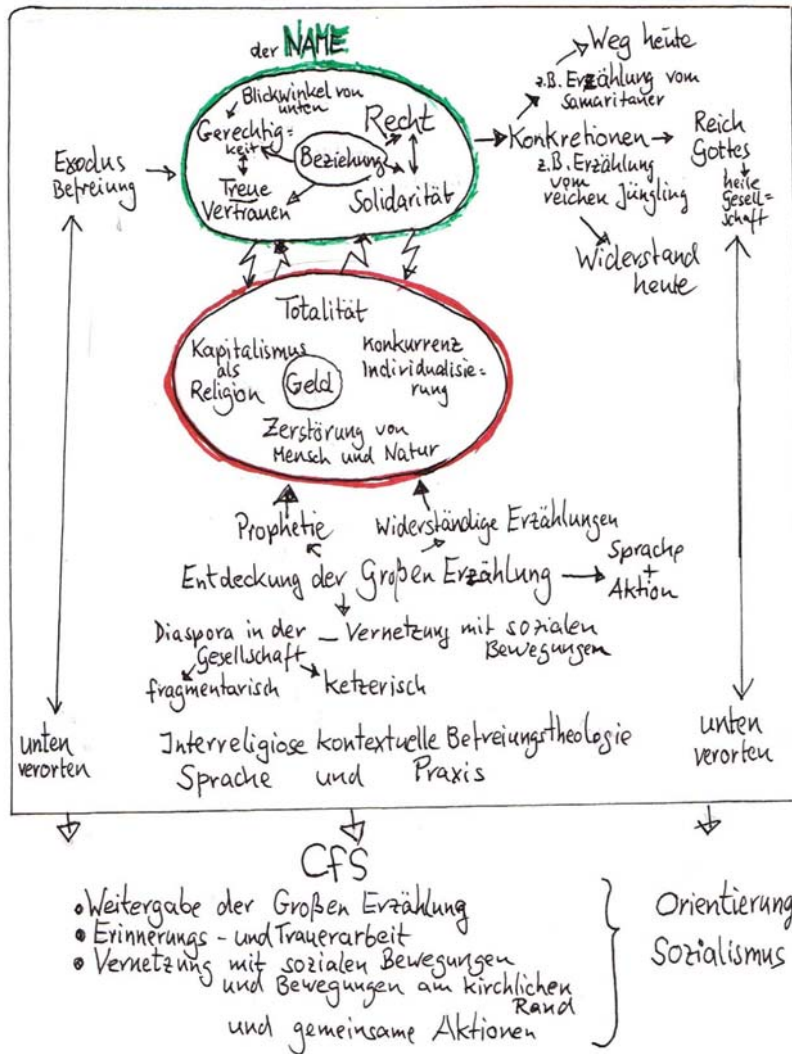 der NAME
Blickwinkel von
unten
Gerechtig=
keit
Recht
Beziehung
Treue
Vertrauen
Solidarität
Exodus
Befreiung
Weg heute
z.B. Erzählung vom
Samaritaner
Konkretionen
z.B. Erzählung
vom
reichen Jüngling
Reich
Gottes
heile
Gesell=
schaft
Widerstand
heute
Totalität
Kapitalismus
als
Religion
Geld
Konkurrenz
Individualisie=
rung
Zerstörung von
Mensch und Natur
Prophetie
Widerständige Erzählungen
Entdeckung der Großen Erzählung
Sprache
+
Aktion
Diaspora in der
Gesellschaft
Vernetzung mit sozialen
Bewegungen
fragmentarisch
ketzerisch
unten
verorten
Interreligiose kontextuelle Befreiungstheologie
Sprache und Praxis
unten
verorten
CfS
• Weitergabe der Großen Erzählung
• Erinnerungs- und Trauerarbeit
• Vernetzung mit sozialen Bewegungen
und Bewegungen am kirchlichen
Rand
und gemeinsame Aktionen
Orientierung
Sozialismus